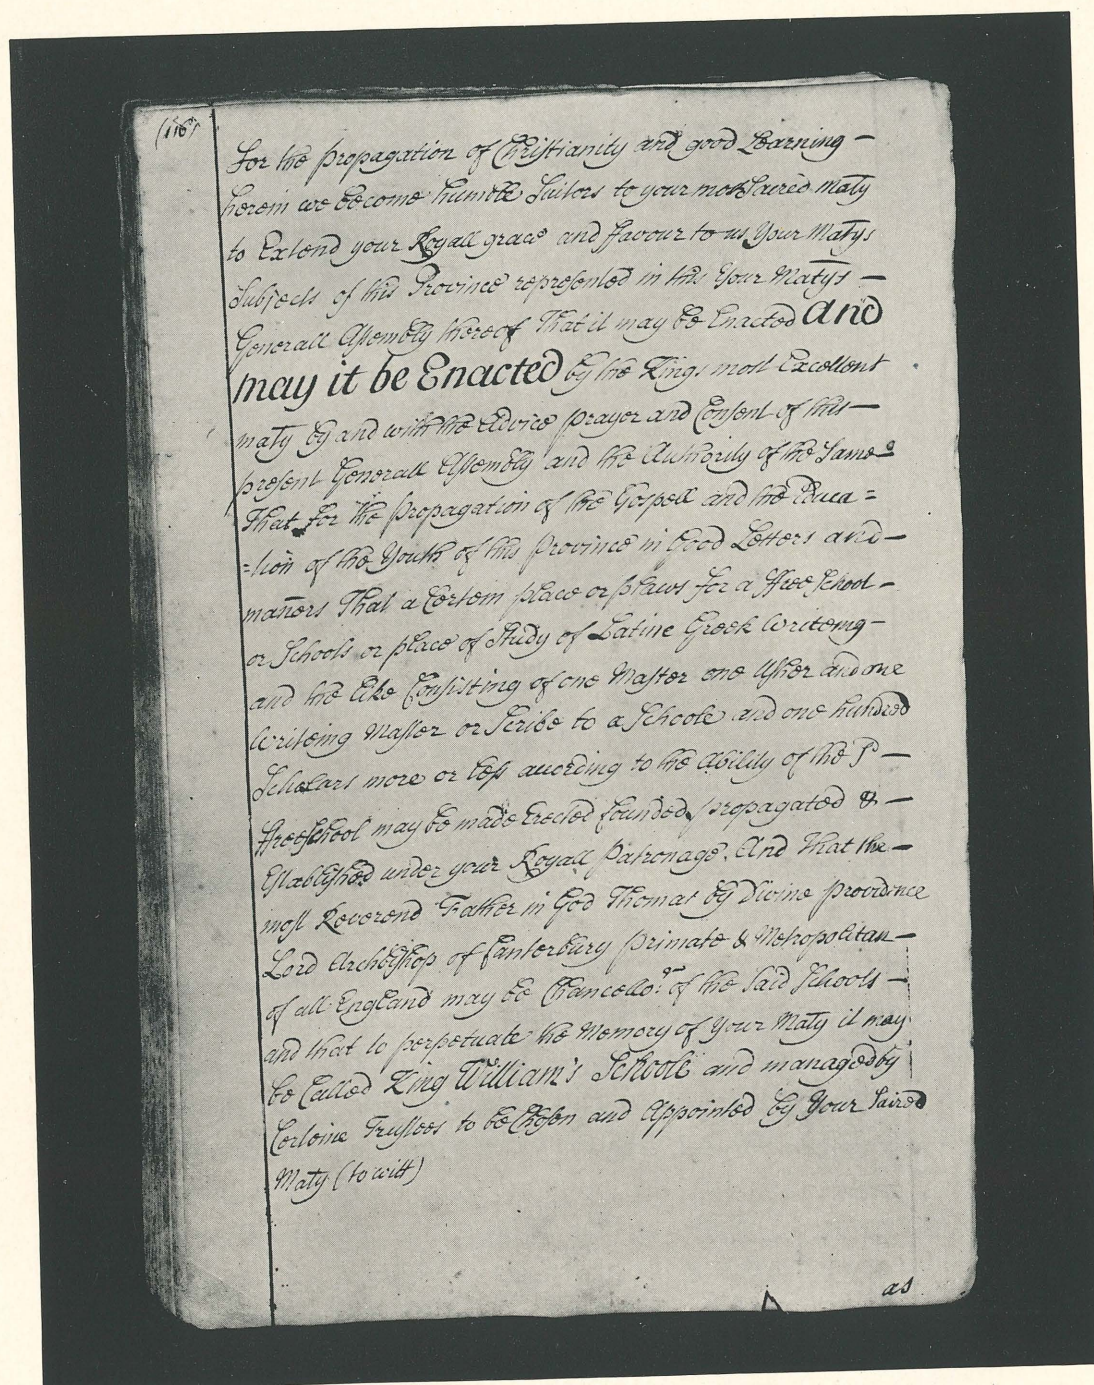 (116)
For the propagation of Christianity and good Learning —
herein we become humble Suitors to your most Sacred Maty
to Extend your Royall grace and favour to us Your Matys
Subjects of this Province represented in this Your Matys —
Generall Assembly thereof That it may be Enacted And
may it be Enacted by the Kings most Excellent
maty by and with the Advice prayer and Consent of this —
present Generall Assembly and the Authority of the Same —
That for the propagation of the Gospell and the Educa =
=tion of the Youth of this province in Good Letters and —
mañers That a Certain place or places for a ffree School —
or Schools or place of Study of Latine Greek Writeing —
and the like Consisting of one Master one Usher and one
Writeing Master or Scribe to a Schoole and one hundred
Scholars more or less according to the Ability of the P —
ffreeschool may be made Erected founded propagated & —
Established under your Royall Patronage. And That the —
most Reverend Father in God Thomas by Divine providence
Lord Archbishop of Canterbury primate & Metropolitan —
of all England may be Chancellor of the Said Schools —
and that to perpetuate the Memory of Your Maty it may
be Called King William's Schoole and managed by
Certaine Trustees to be Chosen and Appointed by Your Sacred
Maty (to witt)
as